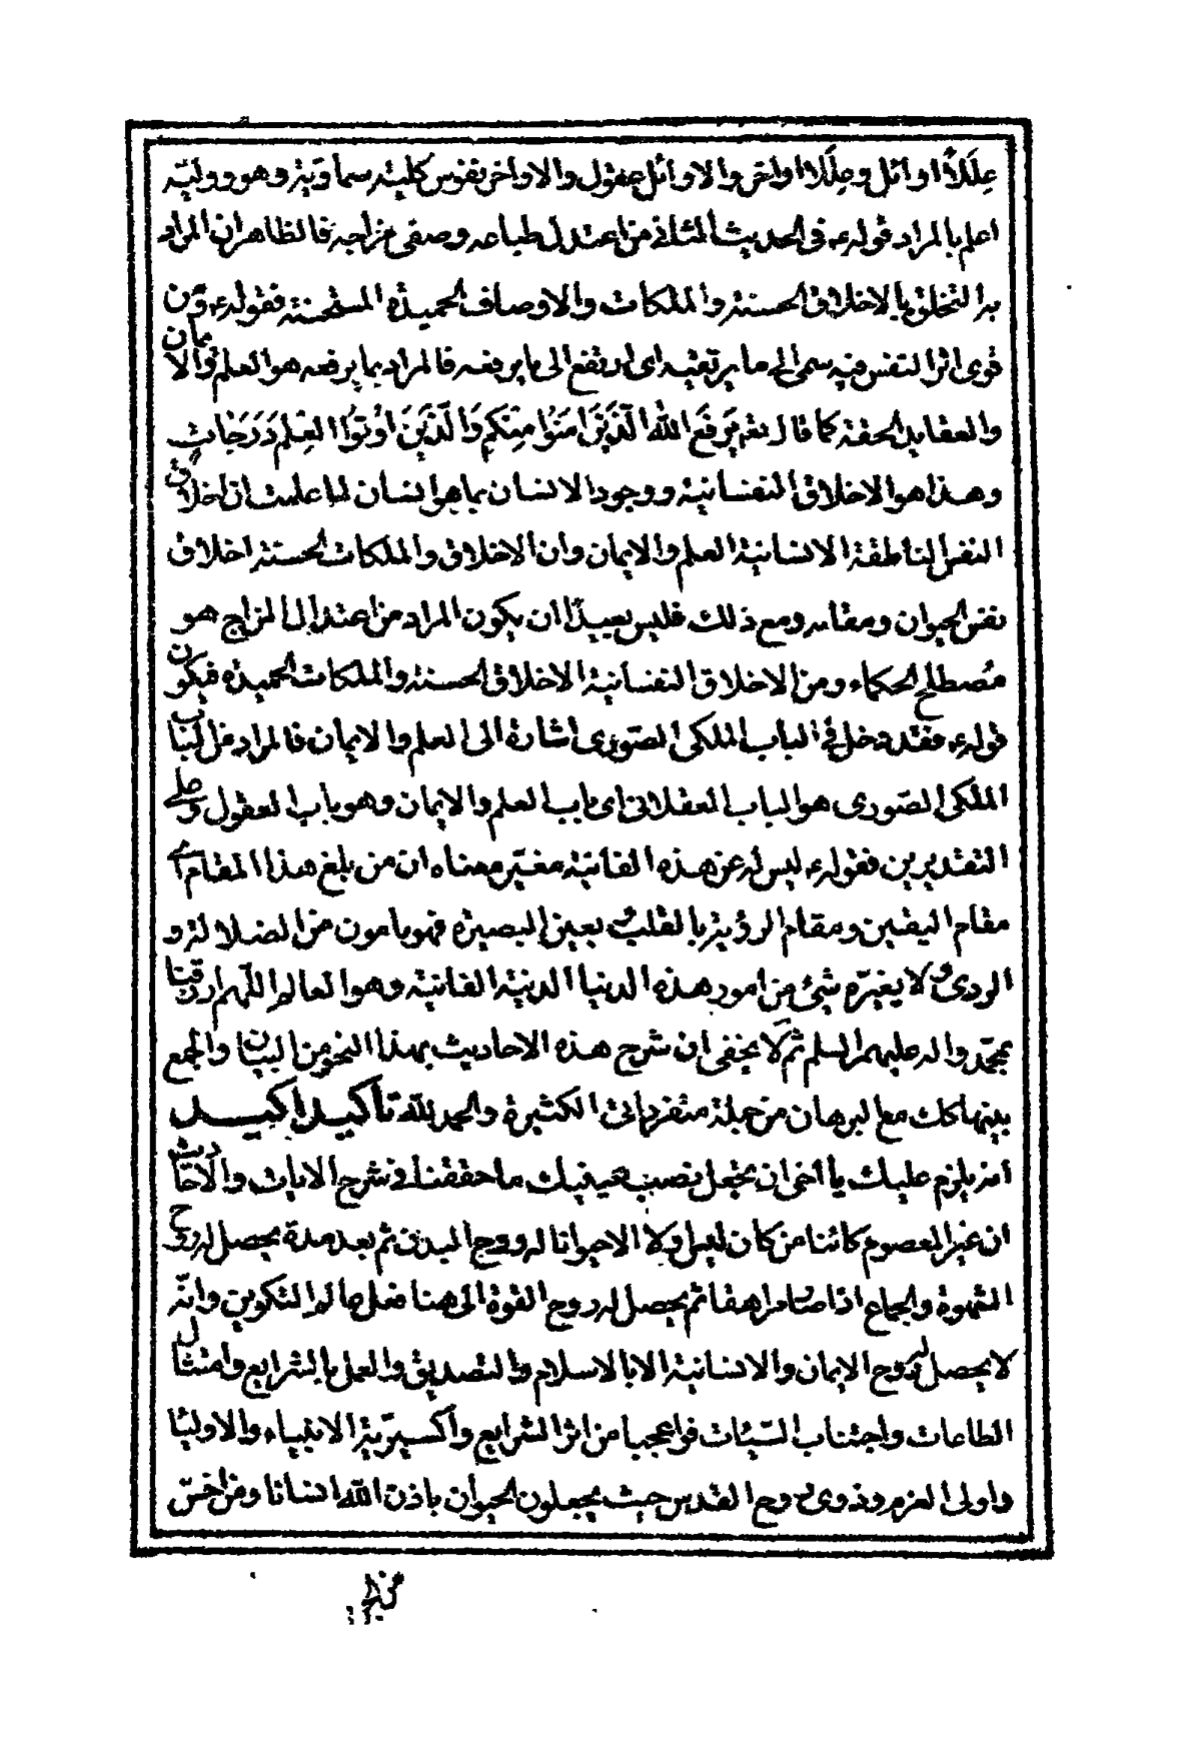 عِلَلاً اوائل وعِلَلاً اواخر والاوائل عقول والاواخر نفوس كلية سماوية وهو ووليه
اعلم بالمراد قوله ع فى الحديث الثانى من اعتدل طباعه وصفى مزاجه فالظاهر ان المراد
به التخلق بالاخلاق الحسنة والملكات والاوصاف الحميدة المستحسنة فقوله ع ومن
قوى اثر النفس فيه سمى الى ما يرتقيه اى ارتفع الى ما يرفعه فالمراد بما يرفعه هو العلم والايمان
والعقايد الحقة كما قال تعم يَرفَعِ اللهُ الَّذينَ امَنُوا مِنكُم وَالَّذينَ اُوتُوا العِلمَ دَرَجاتٍ
وهذا هو الاخلاق النفسانية ووجود الانسان بما هو انسان لما علمت ان اخلاق
النفس الناطقة الانسانية العلم والايمان وان الاخلاق والملكات الحسنة اخلاق
نفس الحيوان ومقامه ومع ذلك فليس بعيداً ان يكون المراد من اعتدال المزاج هو
مصطلح الحكماء ومن الاخلاق النفسانية الاخلاق الحسنة والملكات الحميدة فيكون
قوله ع فقد دخل فى الباب الملكى الصورى اشارة الى العلم والايمان فالمراد من الباب
الملكى الصورى هو الباب العقلانى اى باب العلم والايمان وهو باب العقول وعلى
التقديرين فقوله ع ليس له عن هذه الغانية مغير معناه ان من بلغ هذا المقام اى
مقام اليقين ومقام الرؤية بالقلب بعين البصيرة فهو بامون من الضلالة و
الردى ولا يغيره شئ من امور هذه الدنيا الدنية الفانية وهو العالم اللهم ارزقنا
بمحمد واله عليهم السلم ثم لا يخفى ان شرح هذه الاحاديث بهذا النحو من البيان والجمع
بينها كك مع البرهان من جملة متفرداتى الكثيرة والحمد لله تأكيد اكيد
انه يلزم عليك يا اخى ان تجعل نصب عينيك ما حققنا فى شرح الايات والاحاديث
ان غير المعصوم كائنا من كان ليس اولا الا حيوانا له روح المدرج ثم بعد مدة يحصل له روح
الشهوة والجماع اذا صار مراهقا ثم يحصل له روح القوة الى هنا فعل عالم التكوين وانه
لا يحصل له روح الايمان والانسانية الا بالاسلام والتصديق والعمل بالشرايع وامتثال
الطاعات واجتناب السيئات فواعجبا من اثر الشرايع واكسيرية الانبياء والاوليا
واولى العزم وذوى روح القدس حيث يجعلون الحيوان باذن الله انسانا ومن اخس